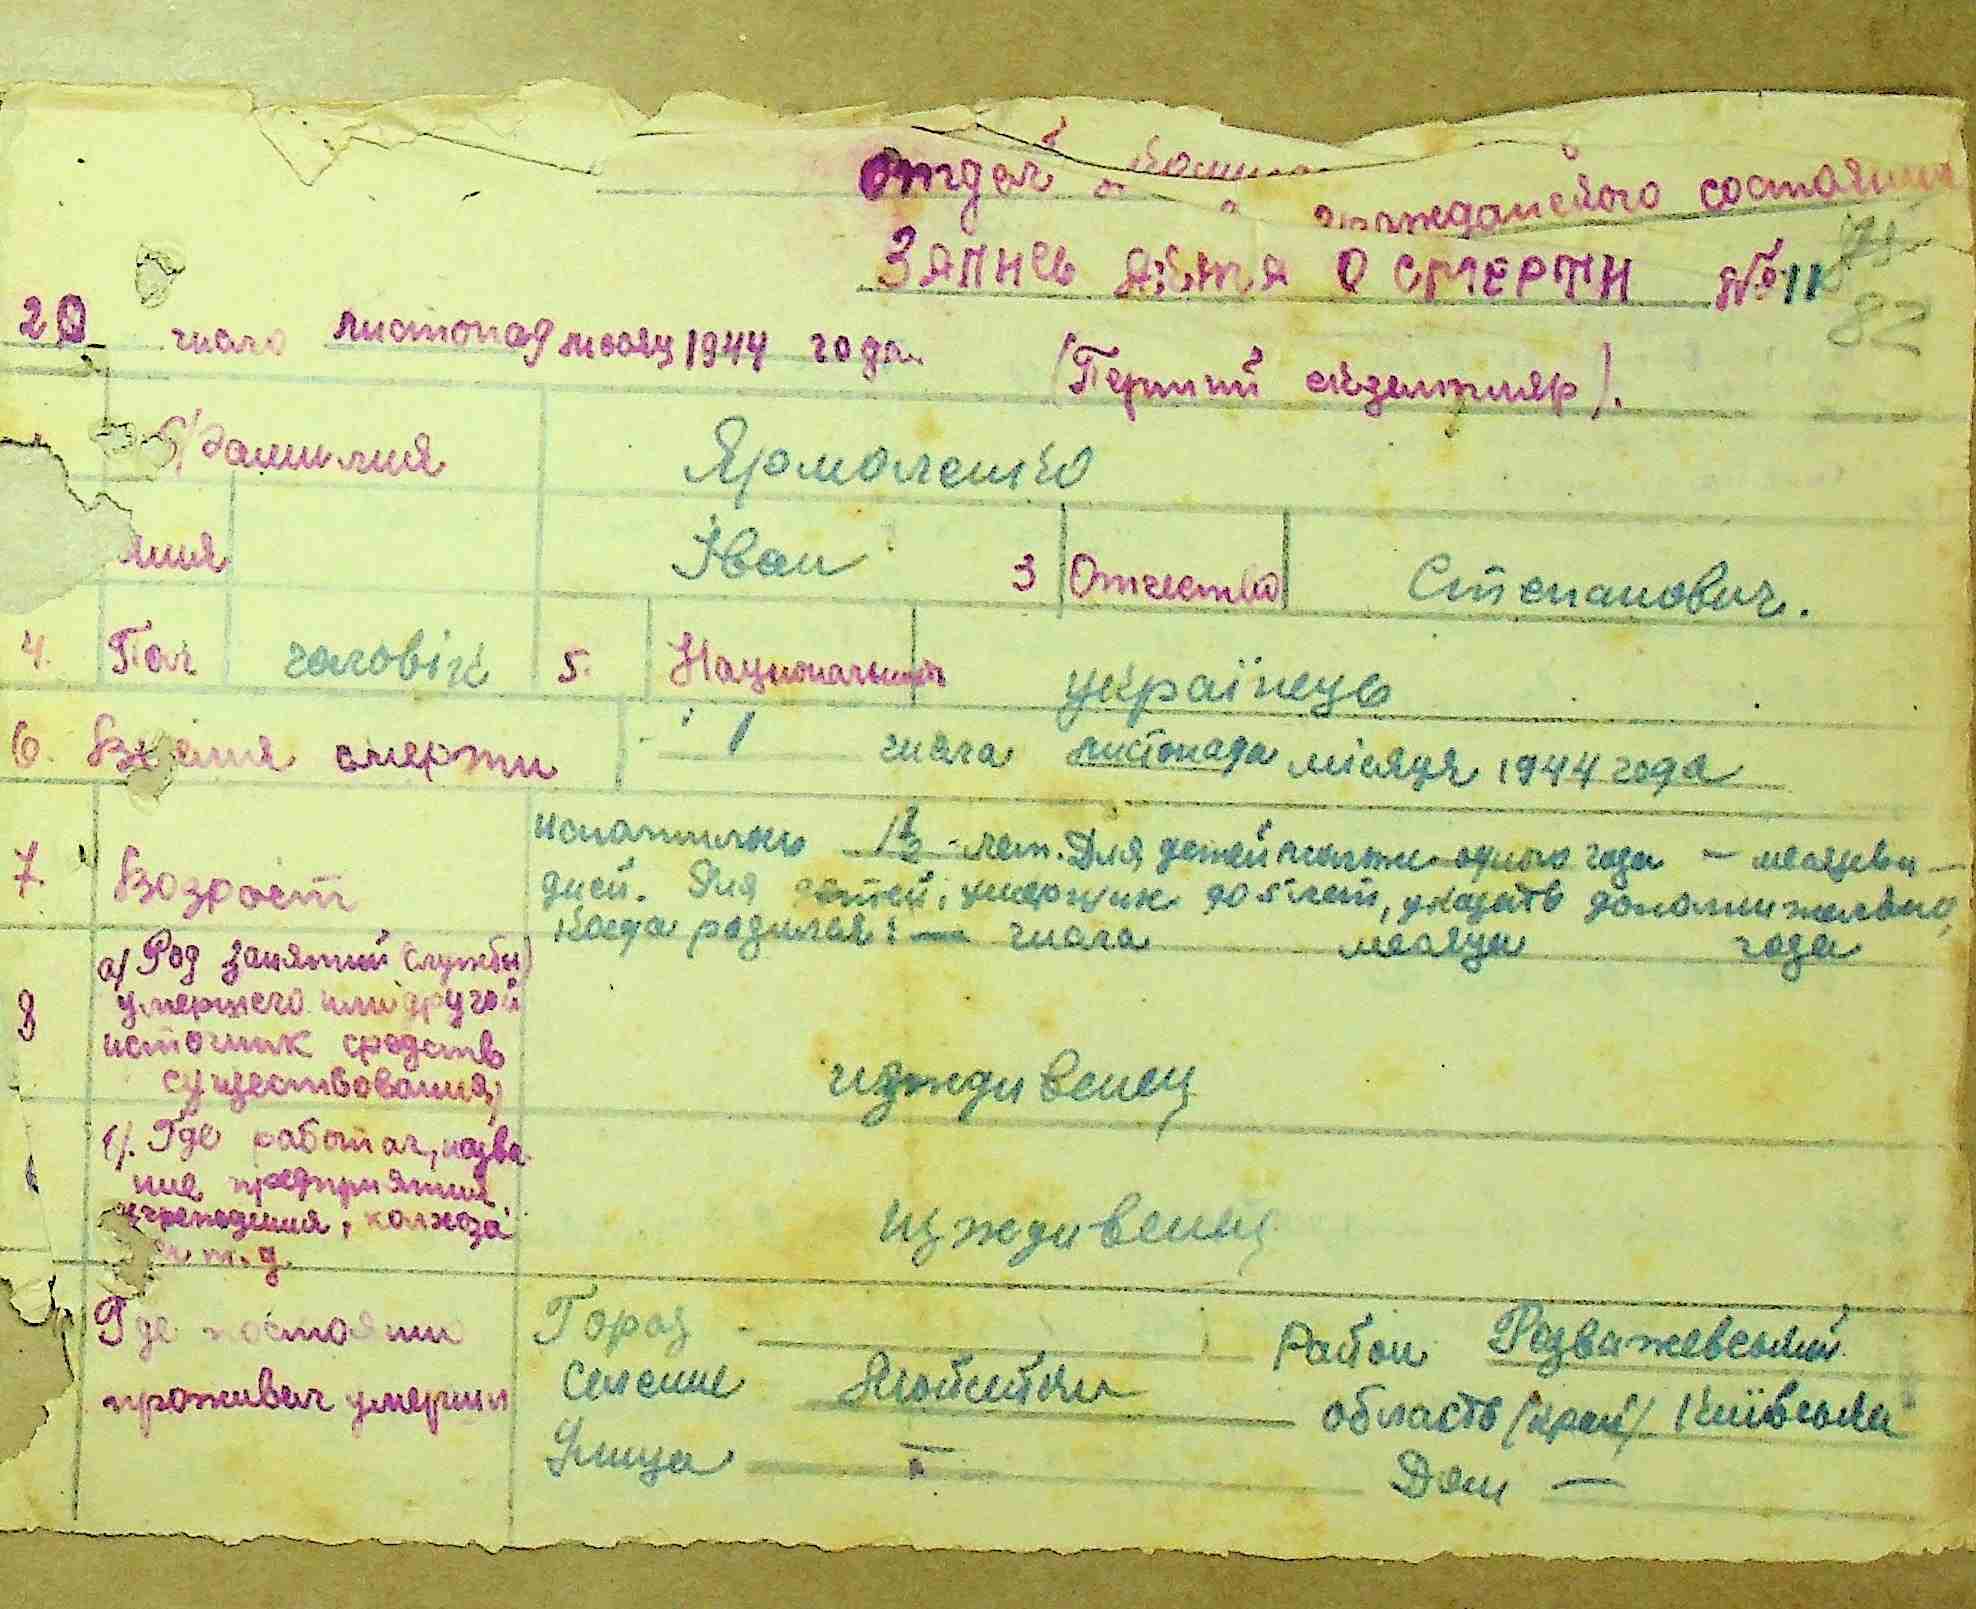 Отдел гражданского состояния
Запись акта о смерти №11
82
20 число листопад месяц 1944 года.
(Перший екземпляр).
Фамилия Ярмоленко
Імя Іван 3 Отчество Степанович.
4. Пол чоловік 5. Национальность українець
6. Время смерти 1 числа листопада місяця 1944 года
7. Возраст
исполнилось 13 лет. Для детей молоти одного года — месяцев —
дней. Для детей, умерших до 5 лет, указать дополнительно,
когда родился: — числа месяца года
8 а/ Род занятий (службы)
умершего или другой
источник средств
существования)
иждивенец
б/. Где работал, назва-
ние предприятия
учреждения, колхоза
и т. д.
иждивенец
Где постоянно
проживал умерший
Город — Район Розважевський
Селение область /край/ Київська
Улица — Дом —